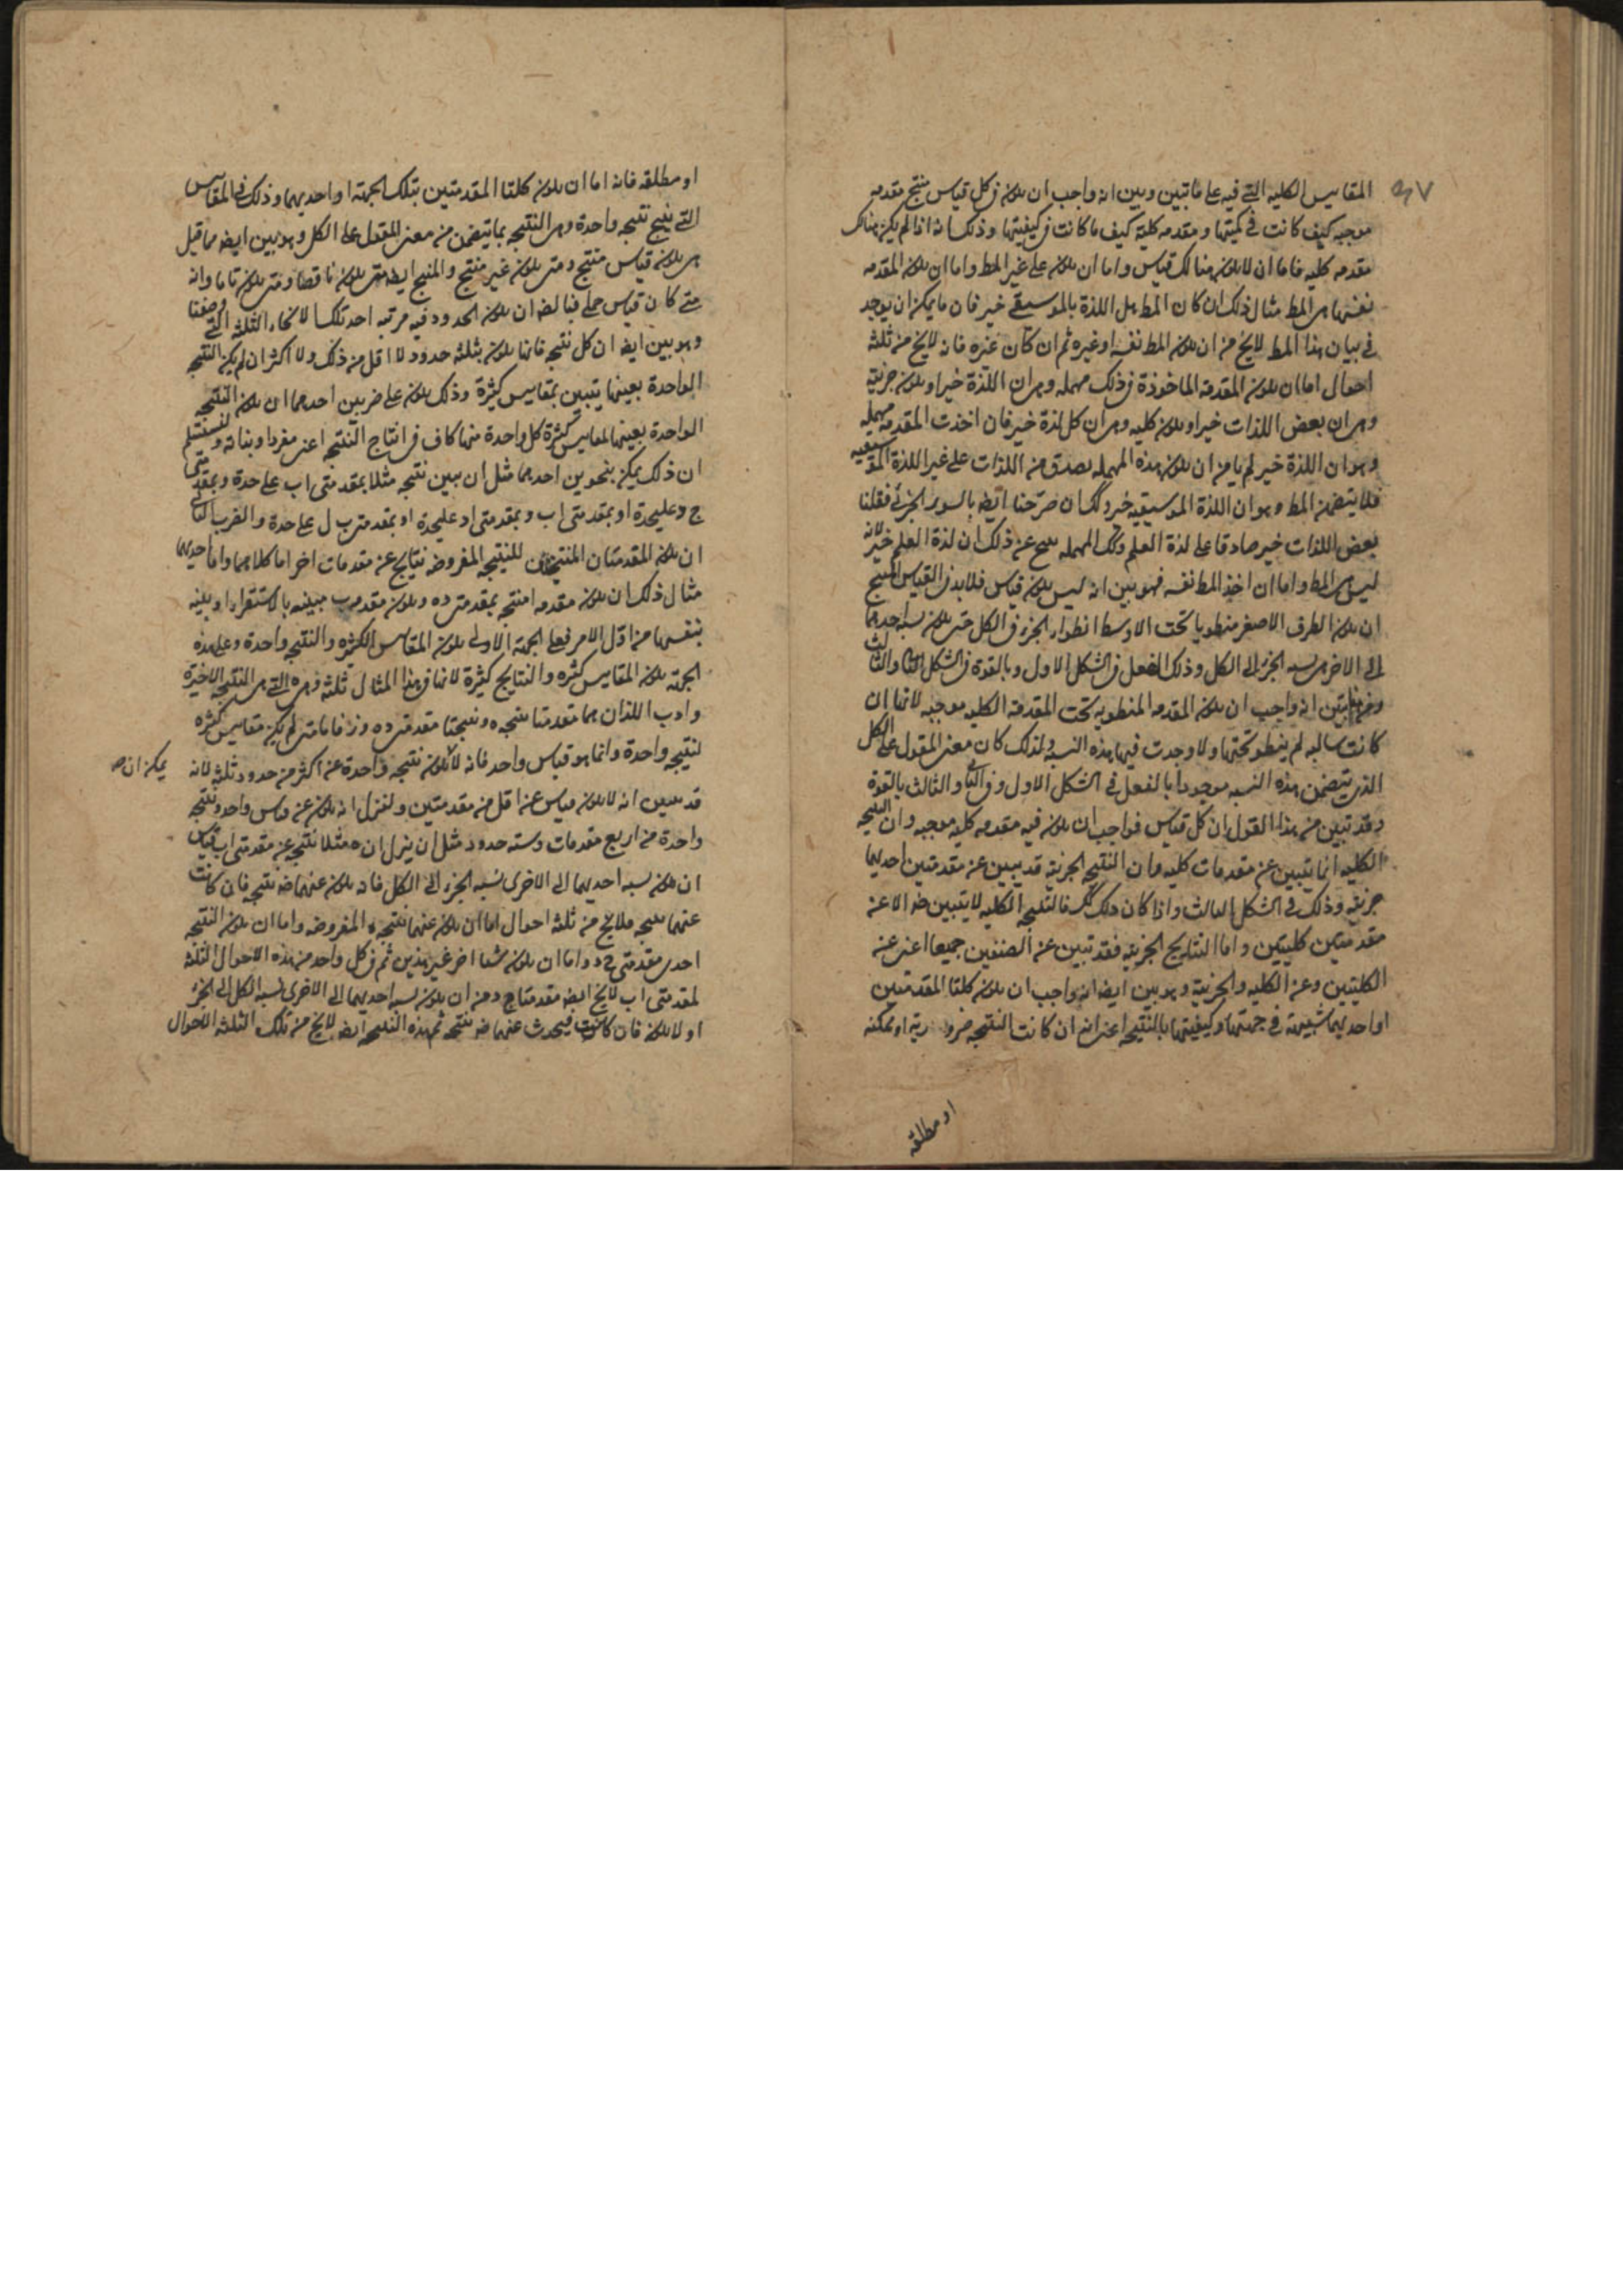 ٤٧
المقاييس الكليه التے فيه على ما تبين وبين انه واجب ان يكون فى كل قياس منتج مقدمه
موجبه كيف كانت فى كميتها و مقدمه كلية كيف ما كانت فى كيفيتها وذلك انه اذا لم يكن هناك
مقدمه كليه فاما ان لا يكون هنالك قياس واما ان يكون على غير المط واما ان يكون المقدمه
نفسها هى المط مثال ذلك ان كان المط هل اللذة بالموسيقے خير فان ما يمكن ان يوجد
فى بيان هذا المط لا يخ من ان يكون المط نفسه او غيره ثم ان كان غيره فانه لا يخ من ثلثه
احوال اما ان يكون المقدمة الماخوذة فى ذلك مهمله وهى ان اللذة خير او يكون جزئية
وهى ان بعض اللذات خير او يكون كليه وهى ان كل لذة خير فان اخذت المقدمه مهمله
وهو ان اللذة خير لم يامن ان يكون هذه المهمله يصدق من اللذات على غير اللذة الموسيقيه
فلا يتضمن المط وهو ان اللذة الموسيقيه خير وكك ان صرحنا ايضه بالسور الجزئى فقلنا
بعض اللذات خير صادقا على لذة العلم وتلك المهمله ينتج عن ذلك ان لذة العلم خير لانه
ليس هى المط واما ان اخذ المط نفسه فهو بين انه ليس يكون قياس فلا بد فى القياس المنتج
ان يكون الطرف الاصغر منطويا تحت الاوسط انطواء الجزء فى الكل حتى يكون نسبه احدهما
الى الاخر هى نسبه الجزء الى الكل وذلك بالفعل فى الشكل الاول وبالقوة فى الشكل الثانى والثالث
ومن هنا تبين انه واجب ان يكون المقدمه المنطويه تحت المقدمة الكليه موجبه لانها ان
كانت سالبه لم ينطو تحتها ولا وجدت فيها هذه النسبه ولذلك كان معنى المقول على الكل
الذى يتضمن هذه النسبه موجودا بالفعل فى الشكل الاول وفى الثانى والثالث بالقوة
وقد تبين من هذا القول ان كل قياس فواجب ان يكون فيه مقدمه كليه موجبه وان النتيجه
الكليه انما يتبين عن مقدمات كليه وان النتيجه الجزئية قد يبين عن مقدمتين احديهما
جزئيه وذلك فى الشكل الثالث واذا كان ذلك كك فالنتيجه الكليه لا يتبين ضه الا عن
مقدمتين كليتين واما النتايج الجزئيه فقد تبين عن الصنفين جميعا اعنى عن
الكليتين وعن الكليه والجزئية وهو بين ايضه انه واجب ان يكون كلتا المقدمتين
او احديهما شبيهة فى جهتها وكيفيتها بالنتيجه اعنى انه ان كانت النتيجه ضرورية او ممكنه
او مطلقه
او مطلقه فانه اما ان يكون كلتا المقدمتين بتلك الجهة او احديهما وذلك فى المقاييس
التے ينتج نتيجه واحدة وهى النتيجه بما يتضمن من معنى المقول على الكل وهو بين ايضه مما قيل
متى يكون قياس منتج ومتى يكون غير منتج والمنتج ايضه متى يكون ناقصا ومتى يكون تاما وانه
متے كان قياس حملے فبالضه ان يكون الحدود فيه مرتبه احد تلك الانحاء الثلثه التے وصفنا
وهو بين ايضه ان كل نتيجه فانها يكون بثلثه حدود لا اقل من ذلك ولا اكثر ان لم يكن النتيجه
الواحدة بعينها يتبين بمقاييس كثيرة وذلك يكون على ضربين احدهما ان يكون النتيجه
الواحدة بعينها لمقاييس كثيرة كل واحدة منها كاف فى انتاج النتيجه اعنى مفردا وبذاته
ان ذلك يمكن بنحوين احدهما مثل ان يبين نتيجه مثلا بمقدمتى اب على حدة وبمقدمتى
ج د عليحدة او بمقدمتى اب وبمقدمتى ا د عليحدة او بمقدمتى ب ل على حدة والضرب الثانى
ان يكون المقدمتان المنتجتان للنتيجه المفروضه نتايج عن مقدمات اخر اما كلاهما واما احديهما
مثال ذلك ان يكون مقدمه ا منتجه بمقدمتى د ه ويكون مقدمه ب مبينه بالاستقراء او بينه
بنفسها من اول الامر فعلى الجهة الاولى يكون المقاييس الكثيره والنتيجه واحدة وعلى هذه
الجهة يكون المقاييس كثيره والنتايج كثيرة لانها فى هذا المثال ثلثه وهى ه التے هى النتيجه الاخيرة
وا وب اللذان هما مقدمتا نتيجه ه ونتيجتا مقدمتى د ه و ز فاما متى لم يكن مقاييس كثيره
لنتيجه واحدة وانما هو قياس واحد فانه لا يكون نتيجه واحدة عن اكثر من حدود ثلثه لانه
يمكن ان صه
قد تبين انه لا يكون قياس عن اقل من مقدمتين ولننزل انه يكون عن قياس واحد ونتيجه
واحدة من اربع مقدمات وسته حدود مثل ان ينزل ان ه مثلا نتيجه عن مقدمتى اب قياس
ان يكون نسبه احديهما الى الاخرى نسبه الجزء الى الكل فانه يكون عنهما ضه نتيجه فان كانت
عنهما نتيجه فلا يخ من ثلثه احوال اما ان يكون عنهما نتيجه ه المفروضه واما ان يكون النتيجه
احدى مقدمتى ج د واما ان يكون شيئا اخر غير هذين ثم فى كل واحد من هذه الاحوال الثلثه
لمقدمتى اب لا يخ ايضه مقدمتا ج د من ان يكون نسبه احديهما الى الاخرى نسبه الكل الى الجزء
او لا يكون فان كانت فيحدث عنهما ضه نتيجه ثم هذه النتيجه ايضه لا يخ من تلك الثلثه الاحوال